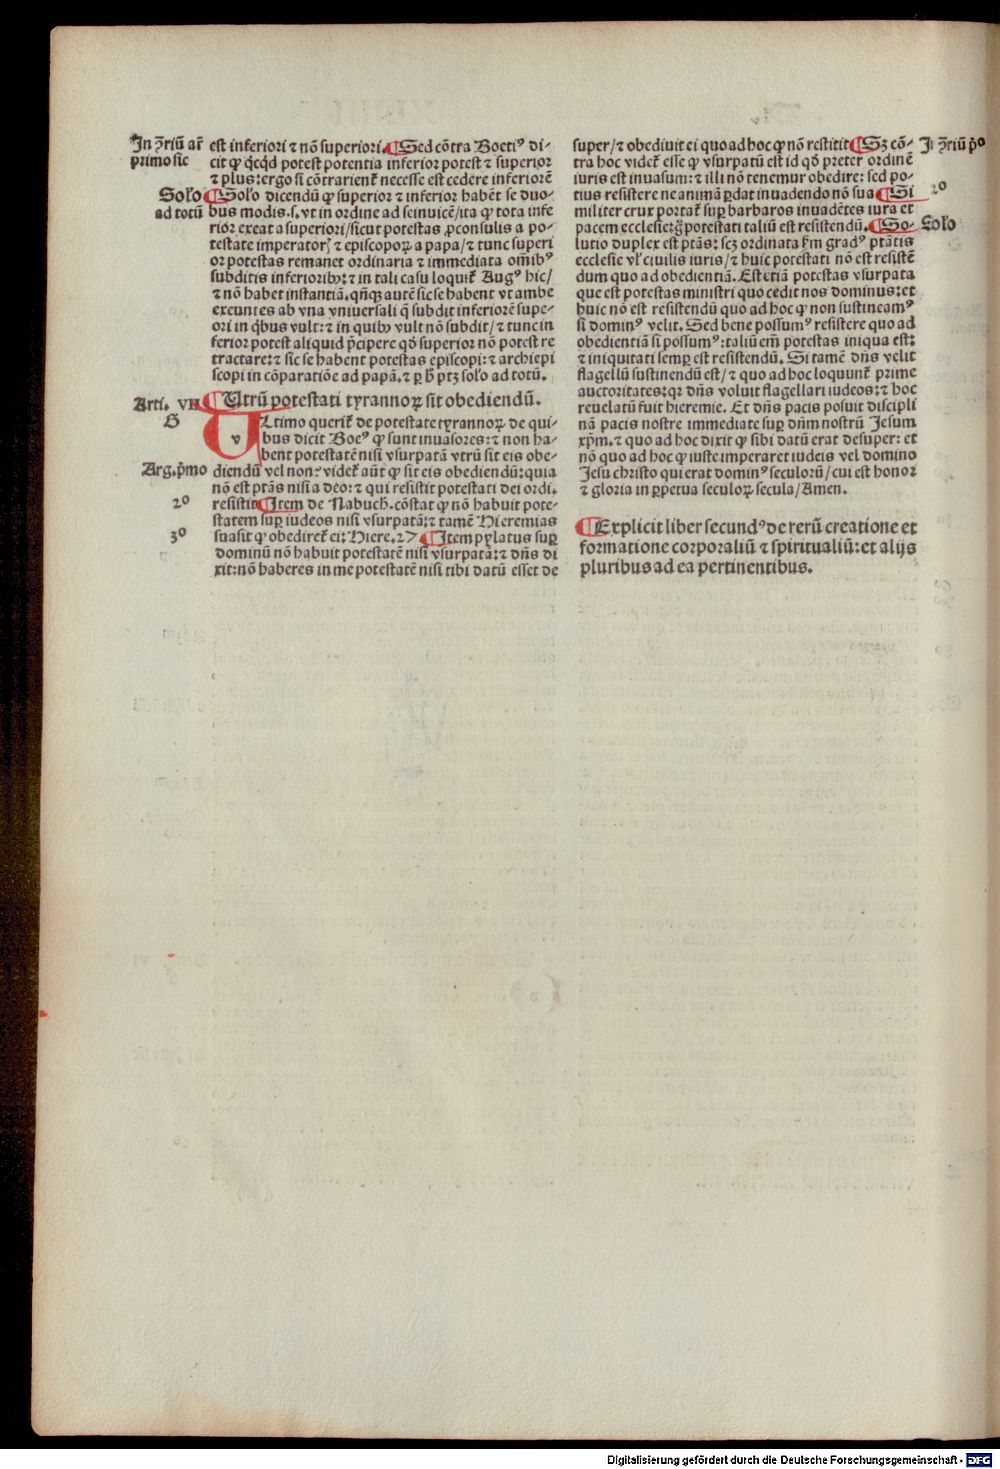 In ɔ̄riū ar̄
primo sic
est inferiori ⁊ nō superiori. ¶ Sed cōtra Boeti⁹ di-
cit ꝙ q̇cqd potest potentia inferior potest ⁊ superior
⁊ plus: ergo si cōtrarient̄ necesse est cedere inferiorē
Solo
ad totū
¶ Solo dicendū ꝙ superior ⁊ inferior habēt se duo-
bus modis .s. vt in ordine ad seinuicē/ita ꝙ tota infe
rior exeat a superiori/sicut potestas ꝓconsulis a po-
testate imperatorꝭ ⁊ episcopoꝝ a papa/⁊ tunc superi
or potestas remanet ordinaria ⁊ immediata om̄ib⁹
subditis inferiorib⁹: ⁊ in tali casu loquit̄ Aug⁹ hic/
⁊ nō habet instantiā. qn̄qꝫ autē sic se habent vt ambe
exeuntes ab vna vniuersali q̄ subdit inferiorē supe-
ori in q̇bus vult: ⁊ in quibꝫ vult nō subdit/⁊ tunc in
ferior potest aliquid p̄cipere qd̄ superior nō potest re
tractare: ⁊ sic se habent potestas episcopi: ⁊ archiepi
scopi in cōparatiōe ad papā. ⁊ ꝑ ħ ptꝫ solo ad totū.
Arti. VII
¶ Vtrū potestati tyrannoꝝ sit obediendū.
G
VLtimo querit̄ de potestate tyrannoꝝ de qui-
bus dicit Boe⁹ ꝙ sunt inuasores: ⁊ non ha-
bent potestatē nisi vsurpatā vtrū sit eis obe-
Arg. p̄mo
diendū vel non? videt̄ aūt ꝙ sit eis obediendū: quia
nō est ptās nisi a deo: ⁊ qui resistit potestati dei ordi.
2o
resistit ¶ Item de Nabuch. cōstat ꝙ nō habuit pote-
statem sup̱ iudeos nisi vsurpatā: ⁊ tamē Hieremias
3o
suasit ꝙ obediret̄ ei: Hiere. 27 ¶ Item pylatus sup̱
dominū nō habuit potestatē nisi vsurpatā: ⁊ dn̄s di
xit: nō haberes in me potestatē nisi tibi datū esset de
super/⁊ obediuit ei quo ad hoc ꝙ nō restitit ¶ Sꝫ cō-
In ɔ̄riū p̄o
tra hoc videt̄ esse ꝙ vsurpatū est id qd̄ preter ordinē
iuris est inuasum: ⁊ illi nō tenemur obedire: sed po-
tius resistere ne animā ꝑdat inuadendo nō sua ¶ Si
2o
militer crux portat̄ sup̱ barbaros inuadētes iura et
pacem ecclesie: gͦ potestati taliū est resistendū. ¶ So-
Solo
lutio duplex est ptās: scꝫ ordinata ẜm grad⁹ ptātis
ecclesie vl̄ ciuilis iuris/⁊ huic potestati nō est resistē
dum quo ad obedientiā. Est etiā potestas vsurpata
que est potestas ministri quo cedit nos dominus: et
huic nō est resistendū quo ad hoc ꝙ non sustineam⁹
si domin⁹ velit. Sed bene possum⁹ resistere quo ad
obedientiā si possum⁹: taliū em̄ potestas iniqua est:
⁊ iniquitati semp̱ est resistendū. Si tamē dn̄s velit
flagellū sustinendū est/⁊ quo ad hoc loquunt̄ prime
auctoritates: qꝛ dn̄s voluit flagellari iudeos: ⁊ hoc
reuelatū fuit hieremie. Et dn̄s pacis posuit discipli
nā pacis nostre immediate sup̱ dn̄m nostrū Jesum
xp̄m. ⁊ quo ad hoc dixit ꝙ sibi datū erat desuper: et
nō quo ad hoc ꝙ iuste imperaret iudeis vel domino
Jesu christo qui erat domin⁹ seculorū/cui est honor
⁊ gloria in ꝑpetua seculoꝝ secula/Amen.
¶ Explicit liber secund⁹ de rerū creatione et
formatione corporaliū ⁊ spiritualiū: et alijs
pluribus ad ea pertinentibus.
Digitalisierung gefördert durch die Deutsche Forschungsgemeinschaft - DFG